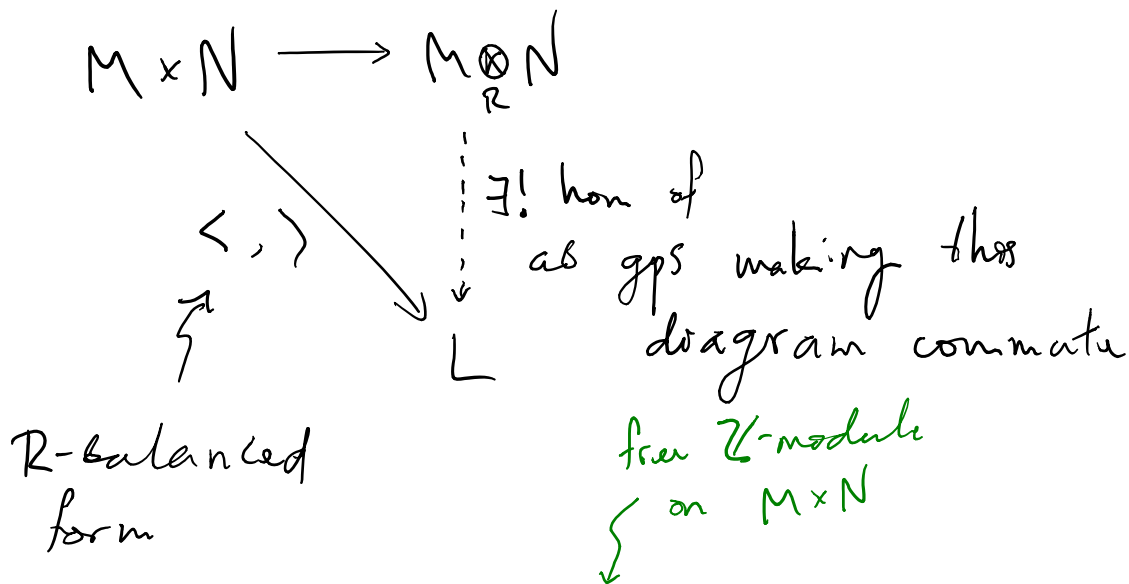 M × N → M ⊗ N
R
∃! hom of
< , >
ab gps making this
L
diagram commute
R-balanced
form
free ℤ-module
on M × N